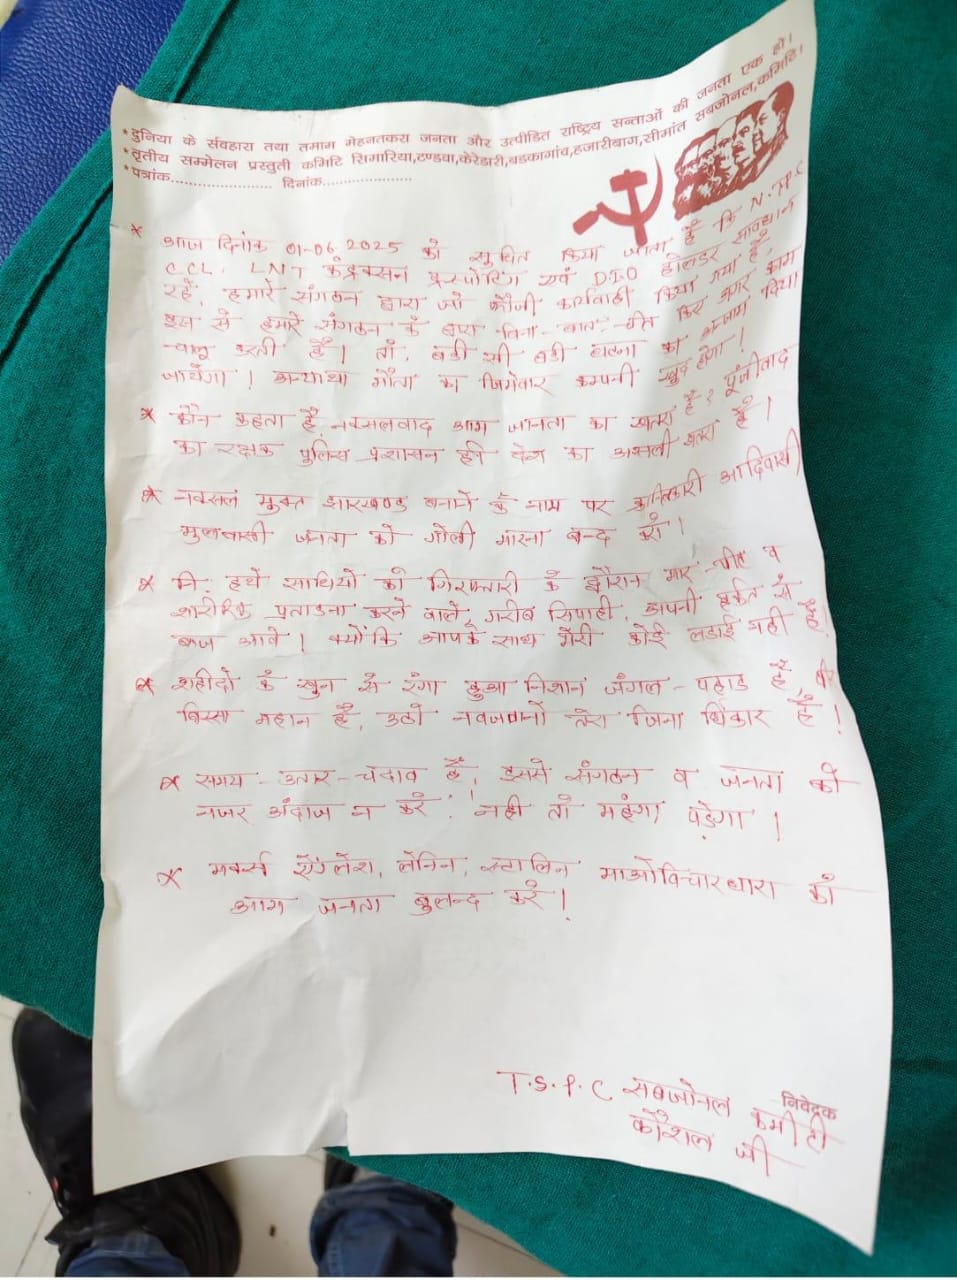 * दुनिया के र्सवहारा तथा तमाम मेहनतकश जनता और उत्पीडित राष्ट्रिय सन्ताओं की जनता एक हो।
* तृतीय सम्मेलन प्रस्तुती कमिटि सिमारिया,टण्डवा,केरेडारी,बडकागांव,हजारीबाग,सीमांत सबजोनल,कमिटि।
* पत्रांक..................... दिनांक.........................
* आज दिनांक 01-06-2025 को सुचित किया जाता है कि N.TP.C
CCL, LNT कंट्रक्सन ट्रस्पोटिंग एवं DIO होलडर सावधान
रहें, हमारे संगठन द्वारा जो फौजी कार्यवाही किया गया है
इस से हमारे संगठन के द्वारा बिना-बात-चीत किए अगर काम
चालु करती है। तो, बडी सी बडी घटना का अन्जाम दिया
जायेगा! अन्याथा मौता का जिमेवार कम्पनी खुद होगा!
* कौन कहता है, नक्सलवाद आम जानता का खतरा है? पूंजीवाद
का रक्षक पुलिस प्रशासन ही देश का असली खतरा है!
* नक्सल मुक्त झारखण्ड बनाने के नाम पर क्रान्तिकारी आदिवासी
मुलवासी जनता को गोली मारना बन्द करो!
* नि: हथे साथियो को गिरफ्तारी के दौरान मार-पीट व
शारीरिक प्रताडना करने वाले, गरीब सिपाही, अपनी हर्कत से
बाज आवे! क्योंकि आपके साथ मेरी कोई लडाई नही है,
* शहीदो के खुन से रंगा हुआ निशान जंगल-पहाड है, वीर
बिरसा महान है, उठो नवजवानो तेरा जिना धिकार है!
* समय-उतार-चढाव है, इससे संगठन व जनता को
नजर अंदाज न करे! नही तो महंगा पडे़गा!
* मर्क्स ऐंग्लेश, लेनिन, स्टालिन माओविचारधारा को
आम जनता बुलन्द करें!
निवेदक
T.S.P.C सबजोनल कमीटी
कौशल जी